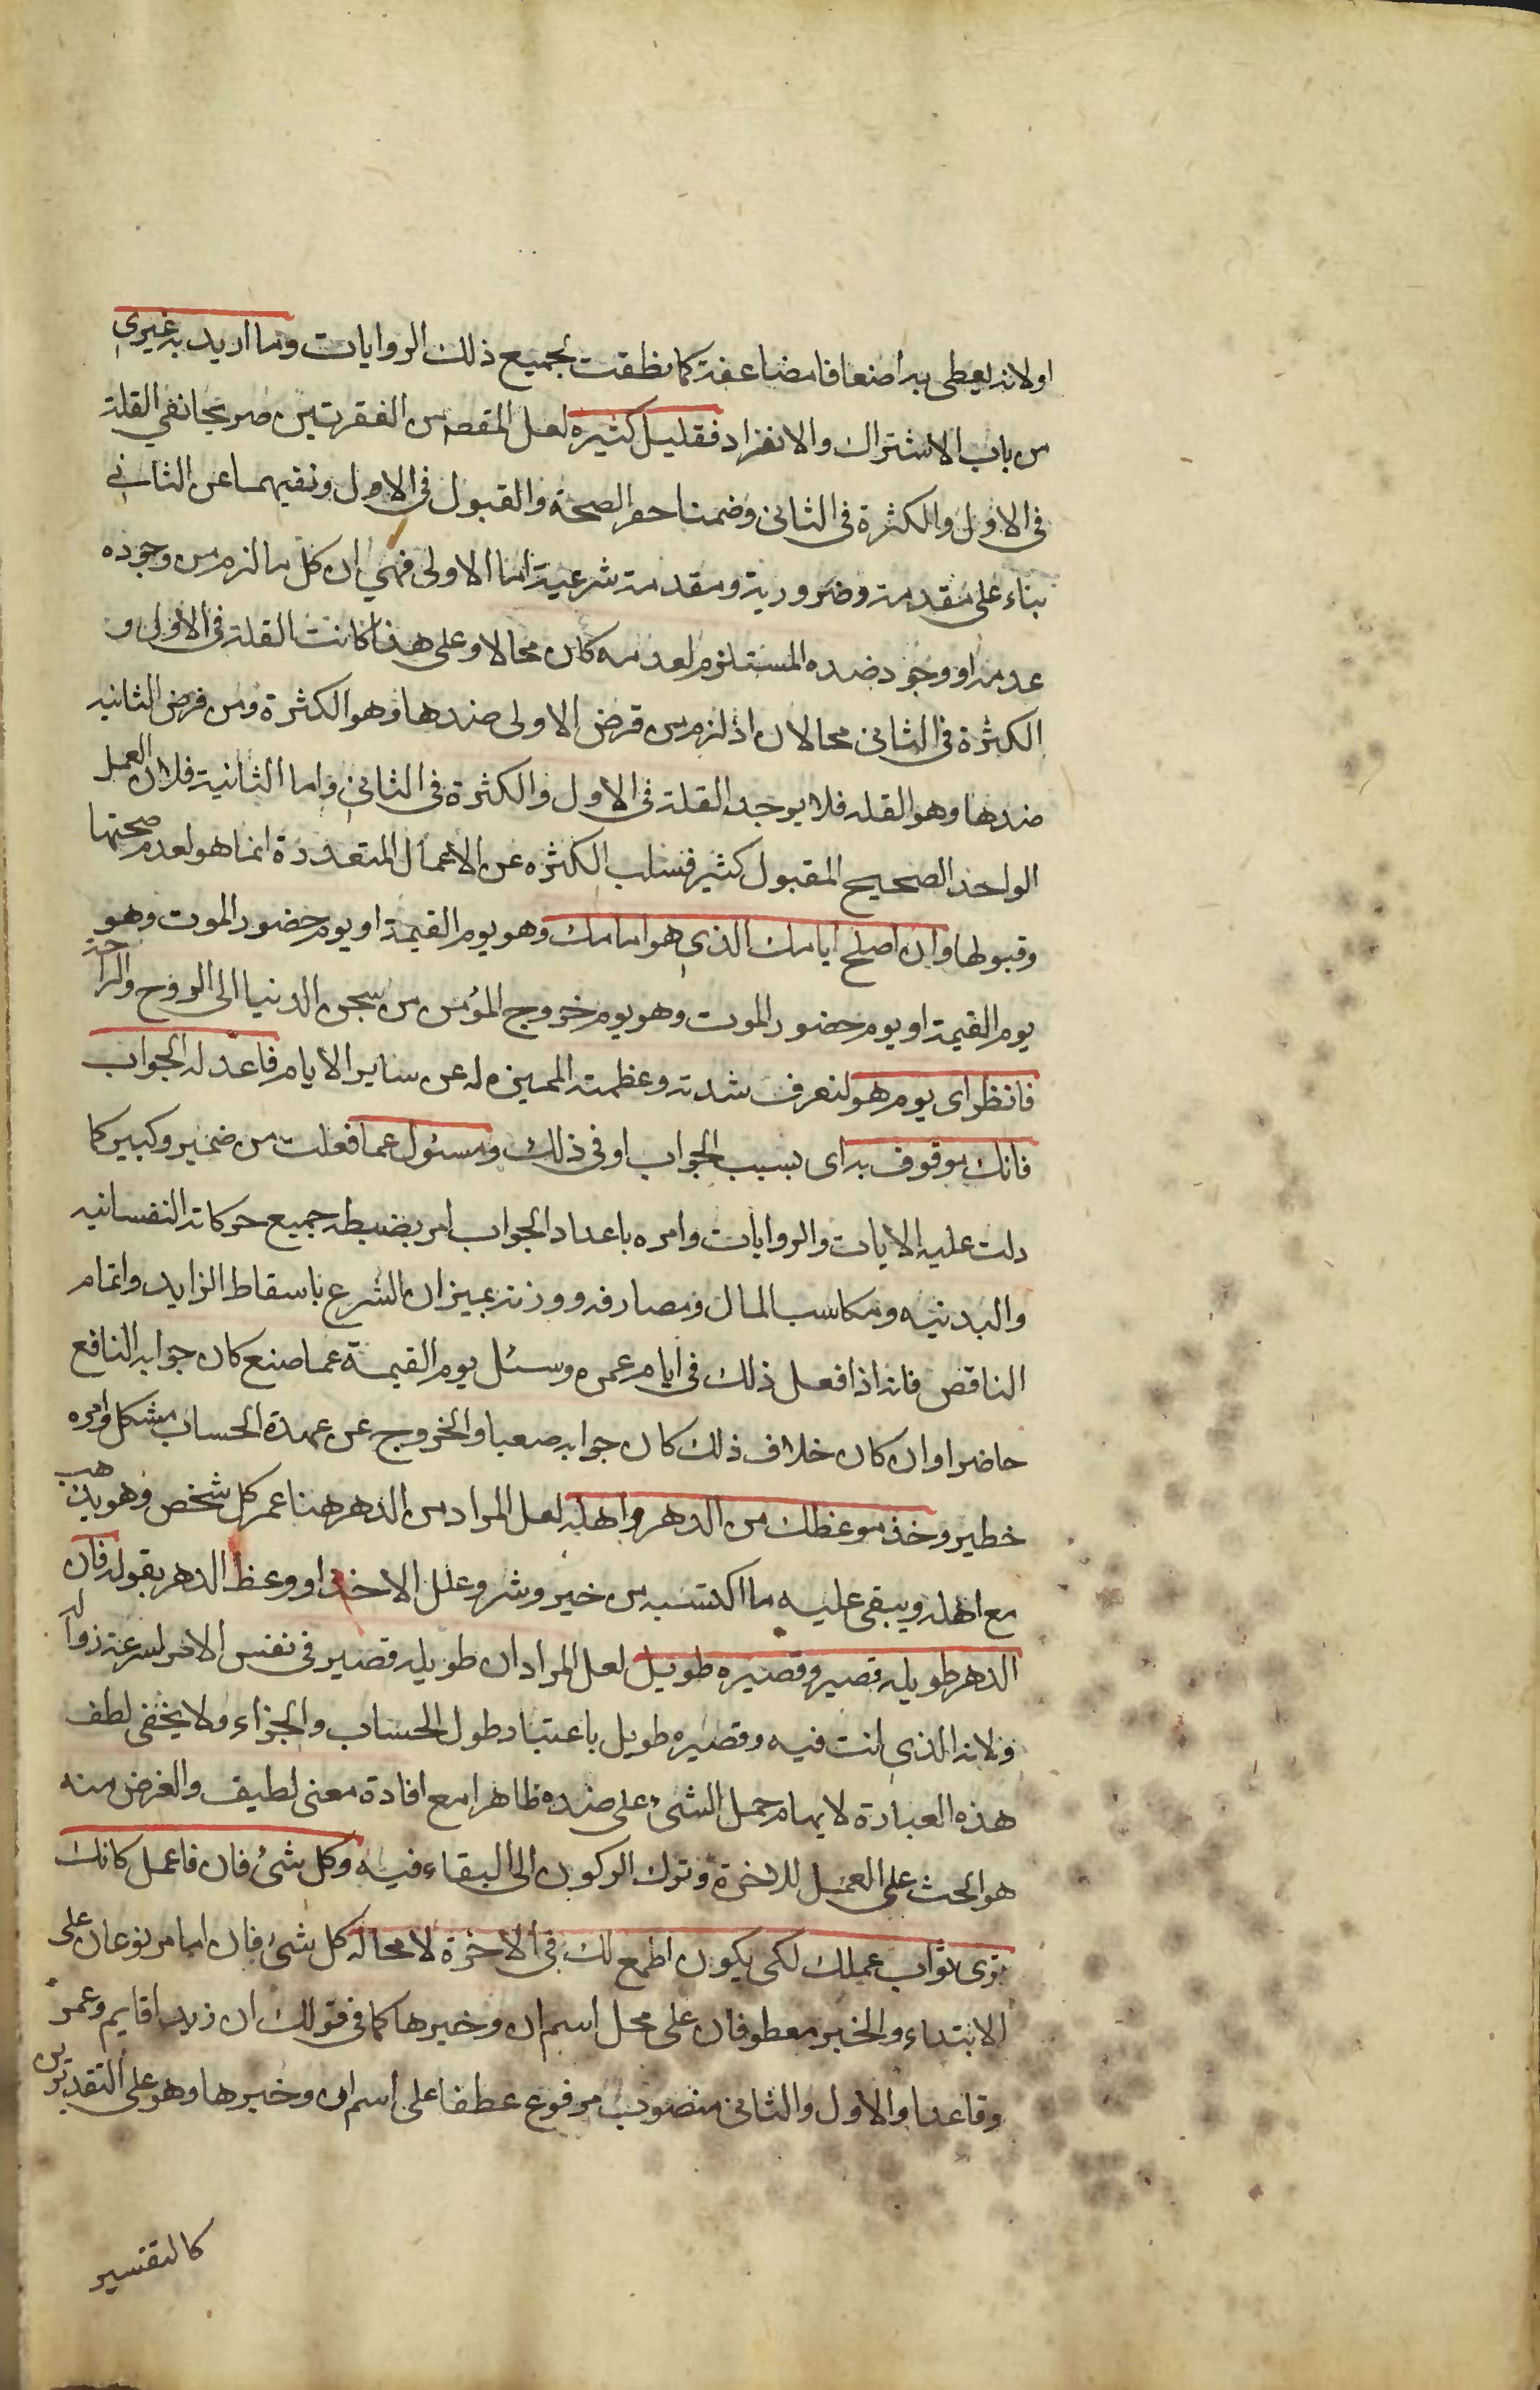 اولانه يعطى به اضعافا مضاعفة كما نطقت بجميع ذلك الروايات وما اريد به غيرى
من باب الاشتراك والانفراد فقليل كثيره لعل المقصود من الفقرتين صريحا نفي القلة
في الاول والكثرة في الثانى وضمنا حصر الصحة والقبول في الاول ونفيهما عن الثاني
بناء على مقدمة وضرورية ومقدمة شرعية اما الاولى فهي ان كل ما لزم من وجوده
عدمه او وجود ضده المستلزم لعدمه كان محالا وعلى هذا كانت القلة في الاولى و
الكثرة في الثانى محالان اذ لزم من فرض الاولى ضدها وهو الكثرة ومن فرض الثانيه
ضدها وهو القله فلا يوجد القلة في الاول والكثرة في الثانى واما الثانية فلان العمل
الواحد الصحيح المقبول كثير فسلب الكثره عن الاعمال المتعددة انما هو لعدم صحتها
وقبولها وان اصلح ايامك الذى هو امامك وهو يوم القيمة او يوم حضور الموت وهو
يوم القيمة او يوم حضور الموت وهو يوم خروج المؤمن من سجن الدنيا الى الروح والراحة
فانظر اى يوم هو لتعرف شدته وعظمته المميزه له عن ساير الايام فاعد له الجواب
فانك موقوف به اى بسبب الجواب او في ذلك ومسئول عما فعلت من صغير وكبير كما
دلت عليه الايات والروايات وامره باعداد الجواب امر بضبطه جميع حركاته النفسانيه
والبدنيه ومكاسب المال ومصارفه ووزنه بميزان الشرع باسقاط الزايد واتمام
الناقص فانه اذا فعل ذلك في ايام عمره وسئل يوم القيمة عما صنع كان جوابه النافع
حاضرا وان كان خلاف ذلك كان جوابه صعبا والخروج عن عهدة الحساب مشكل وامره
خطير وخذ موعظتك من الدهر واهله لعل المراد من الدهر هنا عمر كل شخص وهو يذهب
مع اهله ويبقى عليه ما اكتسبه من خير وشر وعلل الاخذ او وعظ الدهر بقوله فان
الدهر طويله قصير وقصيره طويل لعل المراد ان طويله قصير في نفس الامر لسرعة زواله
ولانه الذى انت فيه وقصيره طويل باعتبار طول الحساب والجزاء ولا يخفى لطف
هذه العبارة لايهام حمل الشىء على ضده ظاهرا مع افادة معنى لطيف والغرض منه
هو الحث على العمل للاخرة وترك الركون الى البقاء فيه وكل شئ فان فاعمل كانك
ترى ثواب عملك لكى يكون اطمع لك في الاخرة لا محاله كل شئ فان اما مرفوعان على
الابتداء والخبر معطوفان على محل اسم ان وخبرها كما في قولك ان زيدا قايم وعمرو
وقاعدا والاول والثانى منصوب مرفوع عطفا على اسم ان وخبرها وهو على التقديرين
كالتفسير